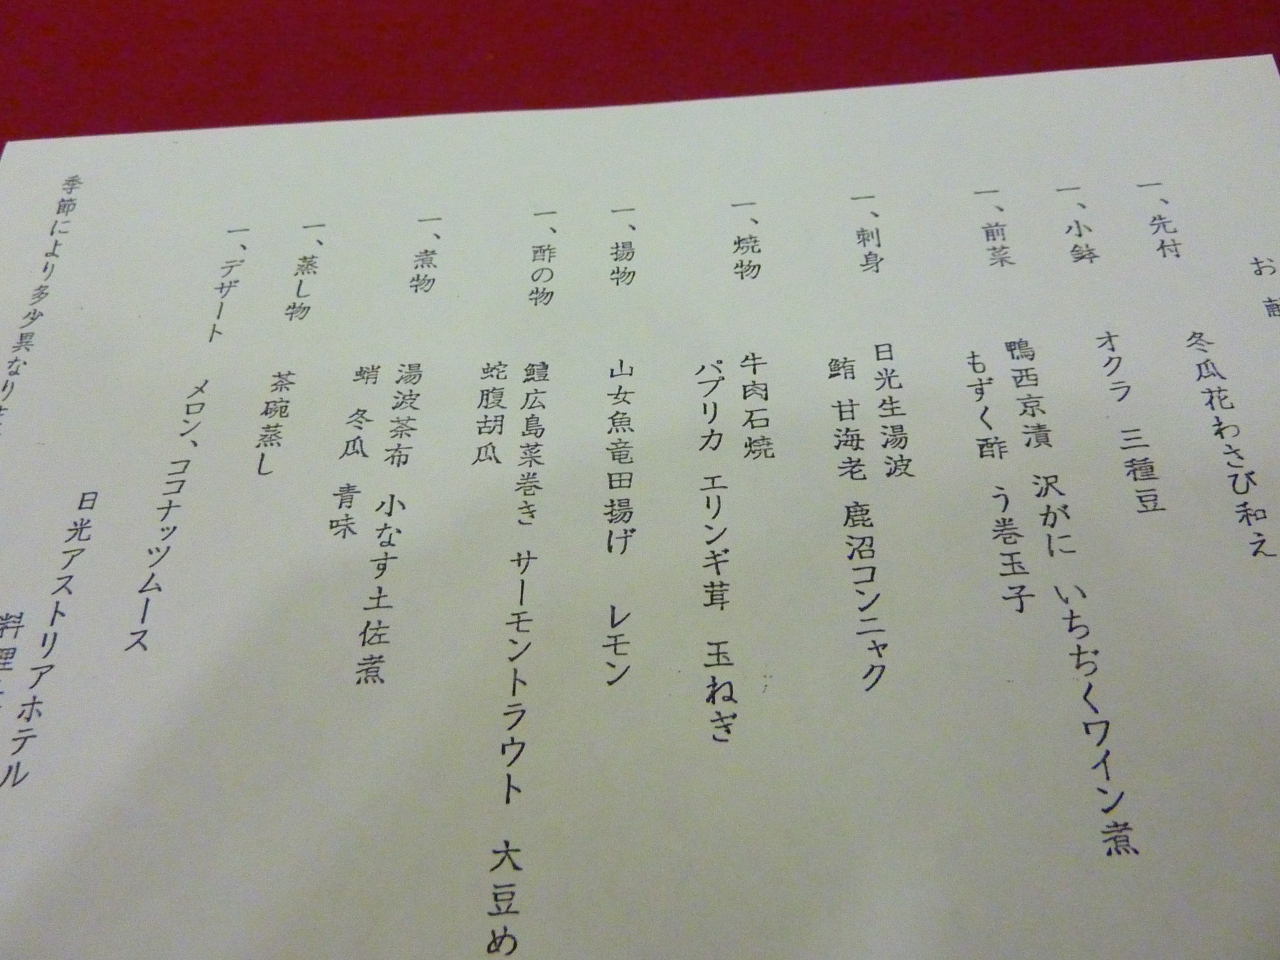 お献
一、先付 冬瓜花わさび和え
一、小鉢 オクラ 三種豆
一、前菜 鴨西京漬 沢がに いちぢくワイン煮
もずく酢 う巻玉子
一、刺身 日光生湯波
鮪 甘海老 鹿沼コンニャク
一、焼物 牛肉石焼
パプリカ エリンギ茸 玉ねぎ
一、揚物 山女魚竜田揚げ レモン
一、酢の物 鱧広島菜巻き サーモントラウト 大豆め
蛇腹胡瓜
一、煮物 湯波茶布 小なす土佐煮
蛸 冬瓜 青味
一、蒸し物 茶碗蒸し
一、デザート メロン、ココナッツムース
季節により多少異なりま
日光アストリアホテル
料理